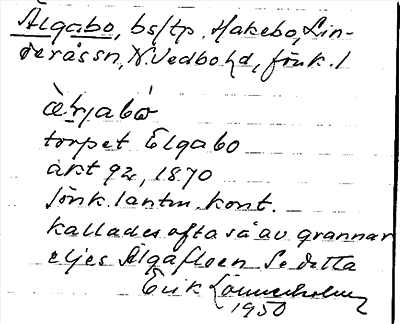 Älgabo, bs/tp. Hakebo, Lin-
deråssn, N.Vedbohd, Jönk.l
torpet Elgabo
akt 92, 1870
Jönk. lantm. kont.
kallades ofta så av grannar
eljes Älgafloen Se detta
Erik Lönnerholm
1950